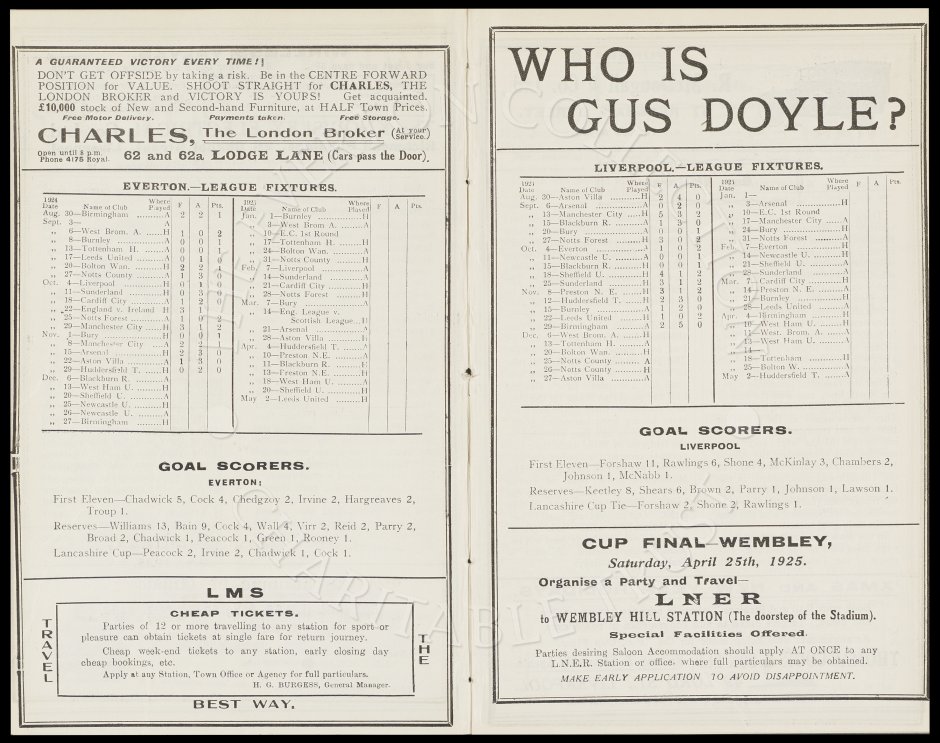 A GUARANTEED VICTORY EVERY TIME!!
DON'T GET OFFSIDE by taking a risk. Be in the CENTRE FORWARD
POSITION for VALUE. SHOOT STRAIGHT for CHARLES, THE
LONDON BROKER and VICTORY IS YOURS! Get acquainted.
£10,000 stock of New and Second-hand Furniture, at HALF Town Prices.
Free Motor Delivery. Payments taken. Free Storage.
CHARLES, The London Broker (At your Service.)
Open until 8 p.m.
Phone 4175 Royal. 62 and 62a LODGE LANE (Cars pass the Door).
EVERTON.—LEAGUE FIXTURES.
1924
Date Name of Club Where Played F A Pts.
Aug. 30—Birmingham ......A 2 2 1
Sept. 3—
„ 6—West Brom. A. ....H 1 0 2
„ 8—Burnley ......A 0 0 1
„ 13—Tottenham H. ....A 0 0 1
„ 17—Leeds United ....A 0 1 0
„ 20—Bolton Wan. ....H 2 2 1
„ 27—Notts County ....A 1 3 0
Oct. 4—Liverpool ....H 0 1 0
„ 11—Sunderland ....H 0 3 0
„ 18—Cardiff City ....A 1 2 0
„ 22—England v. Ireland H 3 1
„ 25—Notts Forest ....A 1 0 2
„ 29—Manchester City ....H 3 1 2
Nov. 1—Bury ....H 0 0 1
„ 8—Manchester City ....A 2 2
„ 15—Arsenal ....H 2 3 0
„ 22—Aston Villa ....A 1 3 0
„ 29—Huddersfield T. ....H 0 2 0
Dec. 6—Blackburn R. ....A
„ 13—West Ham U. ....H
„ 20—Sheffield U. ....A
„ 25—Newcastle U. ....H
„ 26—Newcastle U. ....A
„ 27—Birmingham ....H
1925
Date Name of Club Where Played F A Pts.
Jan. 1—Burnley ....H
„ 3—West Brom A. ....A
„ 10—E.C. 1st Round
„ 17—Tottenham H. ....H
„ 24—Bolton Wan. ....A
„ 31—Notts County ....H
Feb. 7—Liverpool ....A
„ 14—Sunderland ....A
„ 21—Cardiff City ....H
„ 28—Notts Forest ....H
Mar. 7—Bury ....A
„ 14—Eng. League v.
Scottish League...H
„ 21—Arsenal ....A
„ 28—Aston Villa ....H
Apr. 4—Huddersfield T. ....A
„ 10—Preston N.E. ....A
„ 11—Blackburn R. ....H
„ 13—Preston N.E. ....H
„ 18—West Ham U. ....A
„ 20—Sheffield U. ....H
May 2—Leeds United ....H
GOAL SCORERS.
EVERTON:
First Eleven—Chadwick 5, Cock 4, Chedgzoy 2, Irvine 2, Hargreaves 2,
Troup 1.
Reserves—Williams 13, Bain 9, Cock 4, Wall 4, Virr 2, Reid 2, Parry 2,
Broad 2, Chadwick 1, Peacock 1, Green 1, Rooney 1.
Lancashire Cup—Peacock 2, Irvine 2, Chadwick 1, Cock 1.
LMS
TRAVEL
CHEAP TICKETS.
Parties of 12 or more travelling to any station for sport or
pleasure can obtain tickets at single fare for return journey.
Cheap week-end tickets to any station, early closing day
cheap bookings, etc.
Apply at any Station, Town Office or Agency for full particulars.
H. G. BURGESS, General Manager.
THE
BEST WAY.
WHO IS
GUS DOYLE?
LIVERPOOL.—LEAGUE FIXTURES.
1924
Date Name of Club Where Played F A Pts.
Aug. 30—Aston Villa ....H 2 4 0
Sept. 6—Arsenal ....A 0 2 0
„ 13—Manchester City ....H 5 3 2
„ 15—Blackburn R. ....A 1 3 0
„ 20—Bury ....A 0 0 1
„ 27—Notts Forest ....H 3 0 2
Oct. 4—Everton ....A 1 0 2
„ 11—Newcastle U. ....A 0 0 1
„ 15—Blackburn R. ....H 0 0 1
„ 18—Sheffield U. ....H 4 1 2
„ 25—Sunderland ....H 3 1 2
Nov. 8—Preston N. E. ....H 3 1 2
„ 12—Huddersfield T. ....H 2 3 0
„ 15—Burnley ....A 1 2 0
„ 22—Leeds United ....H 1 0 2
„ 29—Birmingham ....A 2 5 0
Dec. 6—West Brom A. ....H
„ 13—Tottenham H. ....A
„ 20—Bolton Wan. ....H
„ 25—Notts County ....A
„ 26—Notts County ....H
„ 27—Aston Villa ....A
1925
Date Name of Club Where Played F A Pts.
Jan. 1—
„ 3—Arsenal ....H
„ 10—E.C. 1st Round
„ 17—Manchester City ....A
„ 24—Bury ....H
„ 31—Notts Forest ....A
Feb. 7—Everton ....H
„ 14—Newcastle U. ....H
„ 21—Sheffield U. ....A
„ 28—Sunderland ....A
Mar. 7—Cardiff City ....H
„ 14—Preston N. E. ....A
„ 21—Burnley ....H
„ 28—Leeds United ....A
Apr. 4—Birmingham ....H
„ 10—West Ham U. ....H
„ 11—West. Brom. A. ....A
„ 13—West Ham U. ....A
„ 14—
„ 18—Tottenham ....H
„ 25—Bolton W. ....A
May 2—Huddersfield T. ....A
GOAL SCORERS.
LIVERPOOL
First Eleven—Forshaw 11, Rawlings 6, Shone 4, McKinlay 3, Chambers 2,
Johnson 1, McNabb 1.
Reserves—Keetley 8, Shears 6, Brown 2, Parry 1, Johnson 1, Lawson 1.
Lancashire Cup Tie—Forshaw 2, Shone 2, Rawlings 1.
CUP FINAL—WEMBLEY,
Saturday, April 25th, 1925.
Organise a Party and Travel—
LNER
to WEMBLEY HILL STATION (The doorstep of the Stadium).
Special Facilities Offered.
Parties desiring Saloon Accommodation should apply AT ONCE to any
L.N.E.R. Station or office, where full particulars may be obtained.
MAKE EARLY APPLICATION TO AVOID DISAPPOINTMENT.